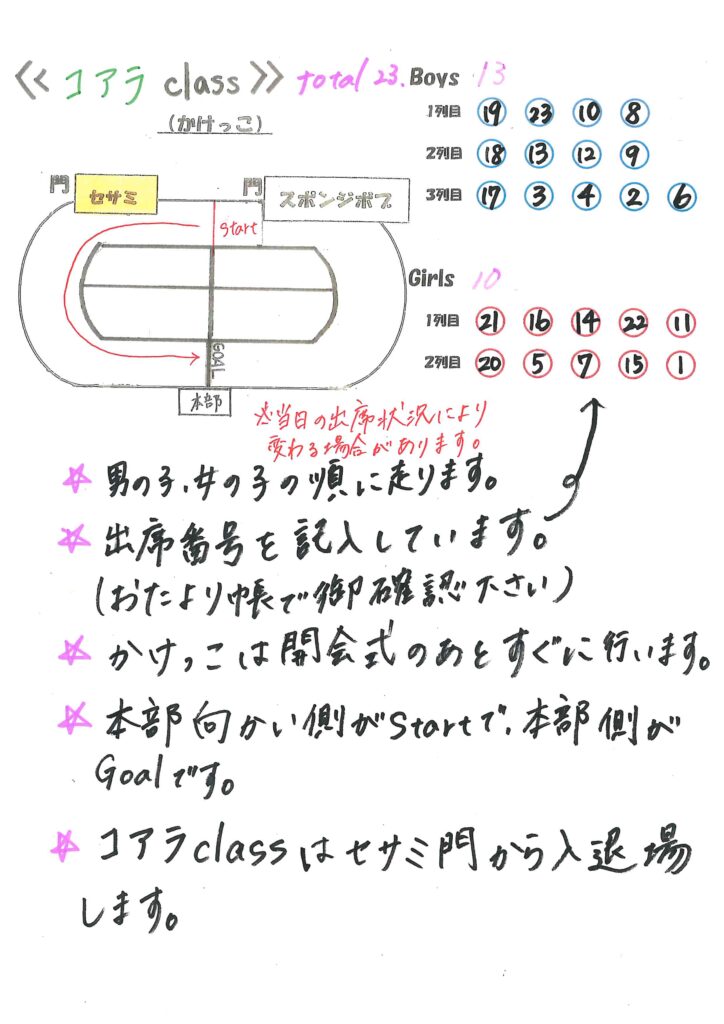 ≪ コアラ class ≫ total 23.
(かけっこ)
Boys 13
1列目 19 23 10 8
2列目 18 13 12 9
3列目 17 3 4 2 6
門 セサミ 門 スポンジボブ
Start
GOAL
本部
Girls 10
1列目 21 16 14 22 11
2列目 20 5 7 15 1
☆当日の出席状況により
変わる場合があります。
☆ 男の子、女の子の順に走ります。
☆ 出席番号を記入しています。
(おたより帳で御確認下さい)
☆ かけっこは開会式のあとすぐに行います。
☆ 本部向かい側がStartで、本部側が
Goalです。
☆ コアラclassはセサミ門から入退場
します。